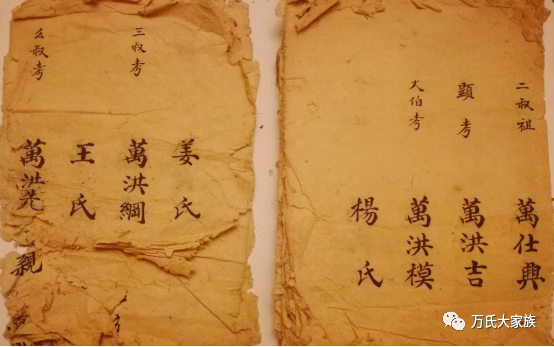 二叔祖 萬仕興
顯考 萬洪吉
大伯考 萬洪模
楊氏
姜氏
三叔考 萬洪綱
王氏
么叔考 萬洪
親
万氏大家族